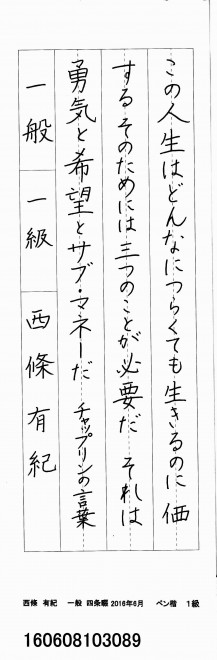 この人生はどんなにつらくても生きるのに 価
する そのためには三つのことが必要だ それは
勇気と希望とサブ・マネーだ チャップリンの言葉
一般 一級 西條有紀
西條 有紀 一般 四条畷 2016年6月 ペン楷 1級
160608103089